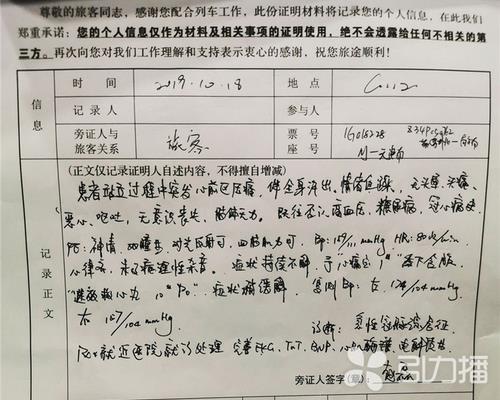 尊敬的旅客同志,感谢您配合列车工作,此份证明材料将记录您的个人信息,在此我们
郑重承诺:您的个人信息仅作为材料及相关事项的证明使用,绝不会透露给任何不相关的第
三方。再次向您对我们工作理解和支持表示衷心的感谢,祝您旅途顺利!
信息
时间 2019.10.18 地点 G112
记录人 参与人
旁证人与旅客关系 旅客 票号
记录正文
(正文仅记录证明人自述内容,不得擅自增减)
患者 过程中突发心前区压痛,伴全身汗出,情绪 ,无头晕、头痛、
恶心、呕吐,无意识丧失,肢体无力。既往否认高血压,糖尿病,冠心病史
PE:神清, 对光反射可,四肢肌力可,BP: /111 mmHg HR:80次/min
心律齐,未及病理性杂音。症状持续不解,予"心痛定1#"舌下含服,
"速效救心丸10# Po"。症状稍缓解,复测BP:左174/104 mmHg
右157/104 mmHg
诊断:急性冠脉综合征
就近医院就诊处理 完善EKG、TnT、BNP、心肌酶谱、电解质等
旁证人签字(章):
引力播